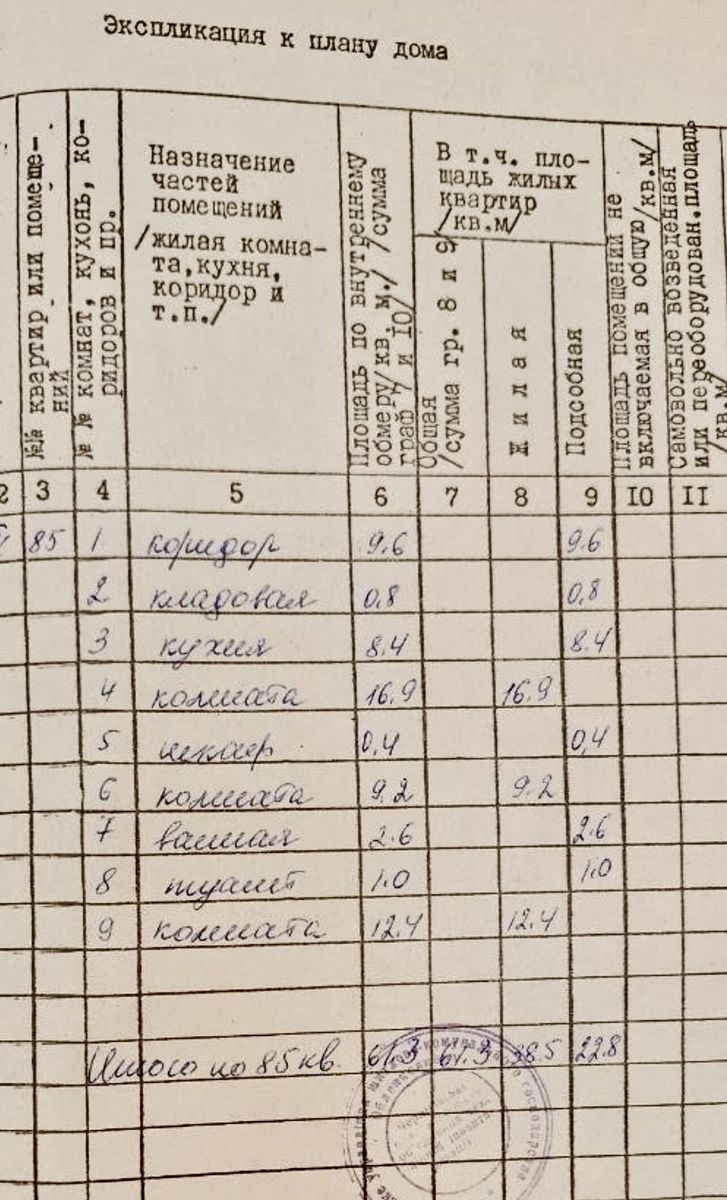 Экспликация к плану дома
№№ квартир или помеще-
ний
№ № комнат, кухонь, ко-
ридоров и пр.
Назначение
частей
помещений
/жилая комна-
та,кухня,
коридор и
т.п./
Площадь по внутреннему
обмеру/кв. м./ /сумма
граф 7 и 10/
В т.ч. пло-
щадь жилых
квартир
/кв.м/
Общая
/сумма гр. 8 и 9/
Жилая
Подсобная
Площадь помещений не
включаемая в общую/кв.м/
Самовольно возведенная
или переоборудован.площадь
/кв.м/
2 3 4 5 6 7 8 9 10 11
85 1 коридор 9.6 9.6
2 кладовая 0,8 0,8
3 кухня 8.4 8.4
4 комната 16.9 16.9
5 шкаф 0,4 0,4
6 комната 9.2 9.2
7 ванная 2.6 2.6
8 туалет 1.0 1.0
9 комната 12.4 12.4
Итого по 85 кв. 61.3 61.3 38.5 22.8
господарства